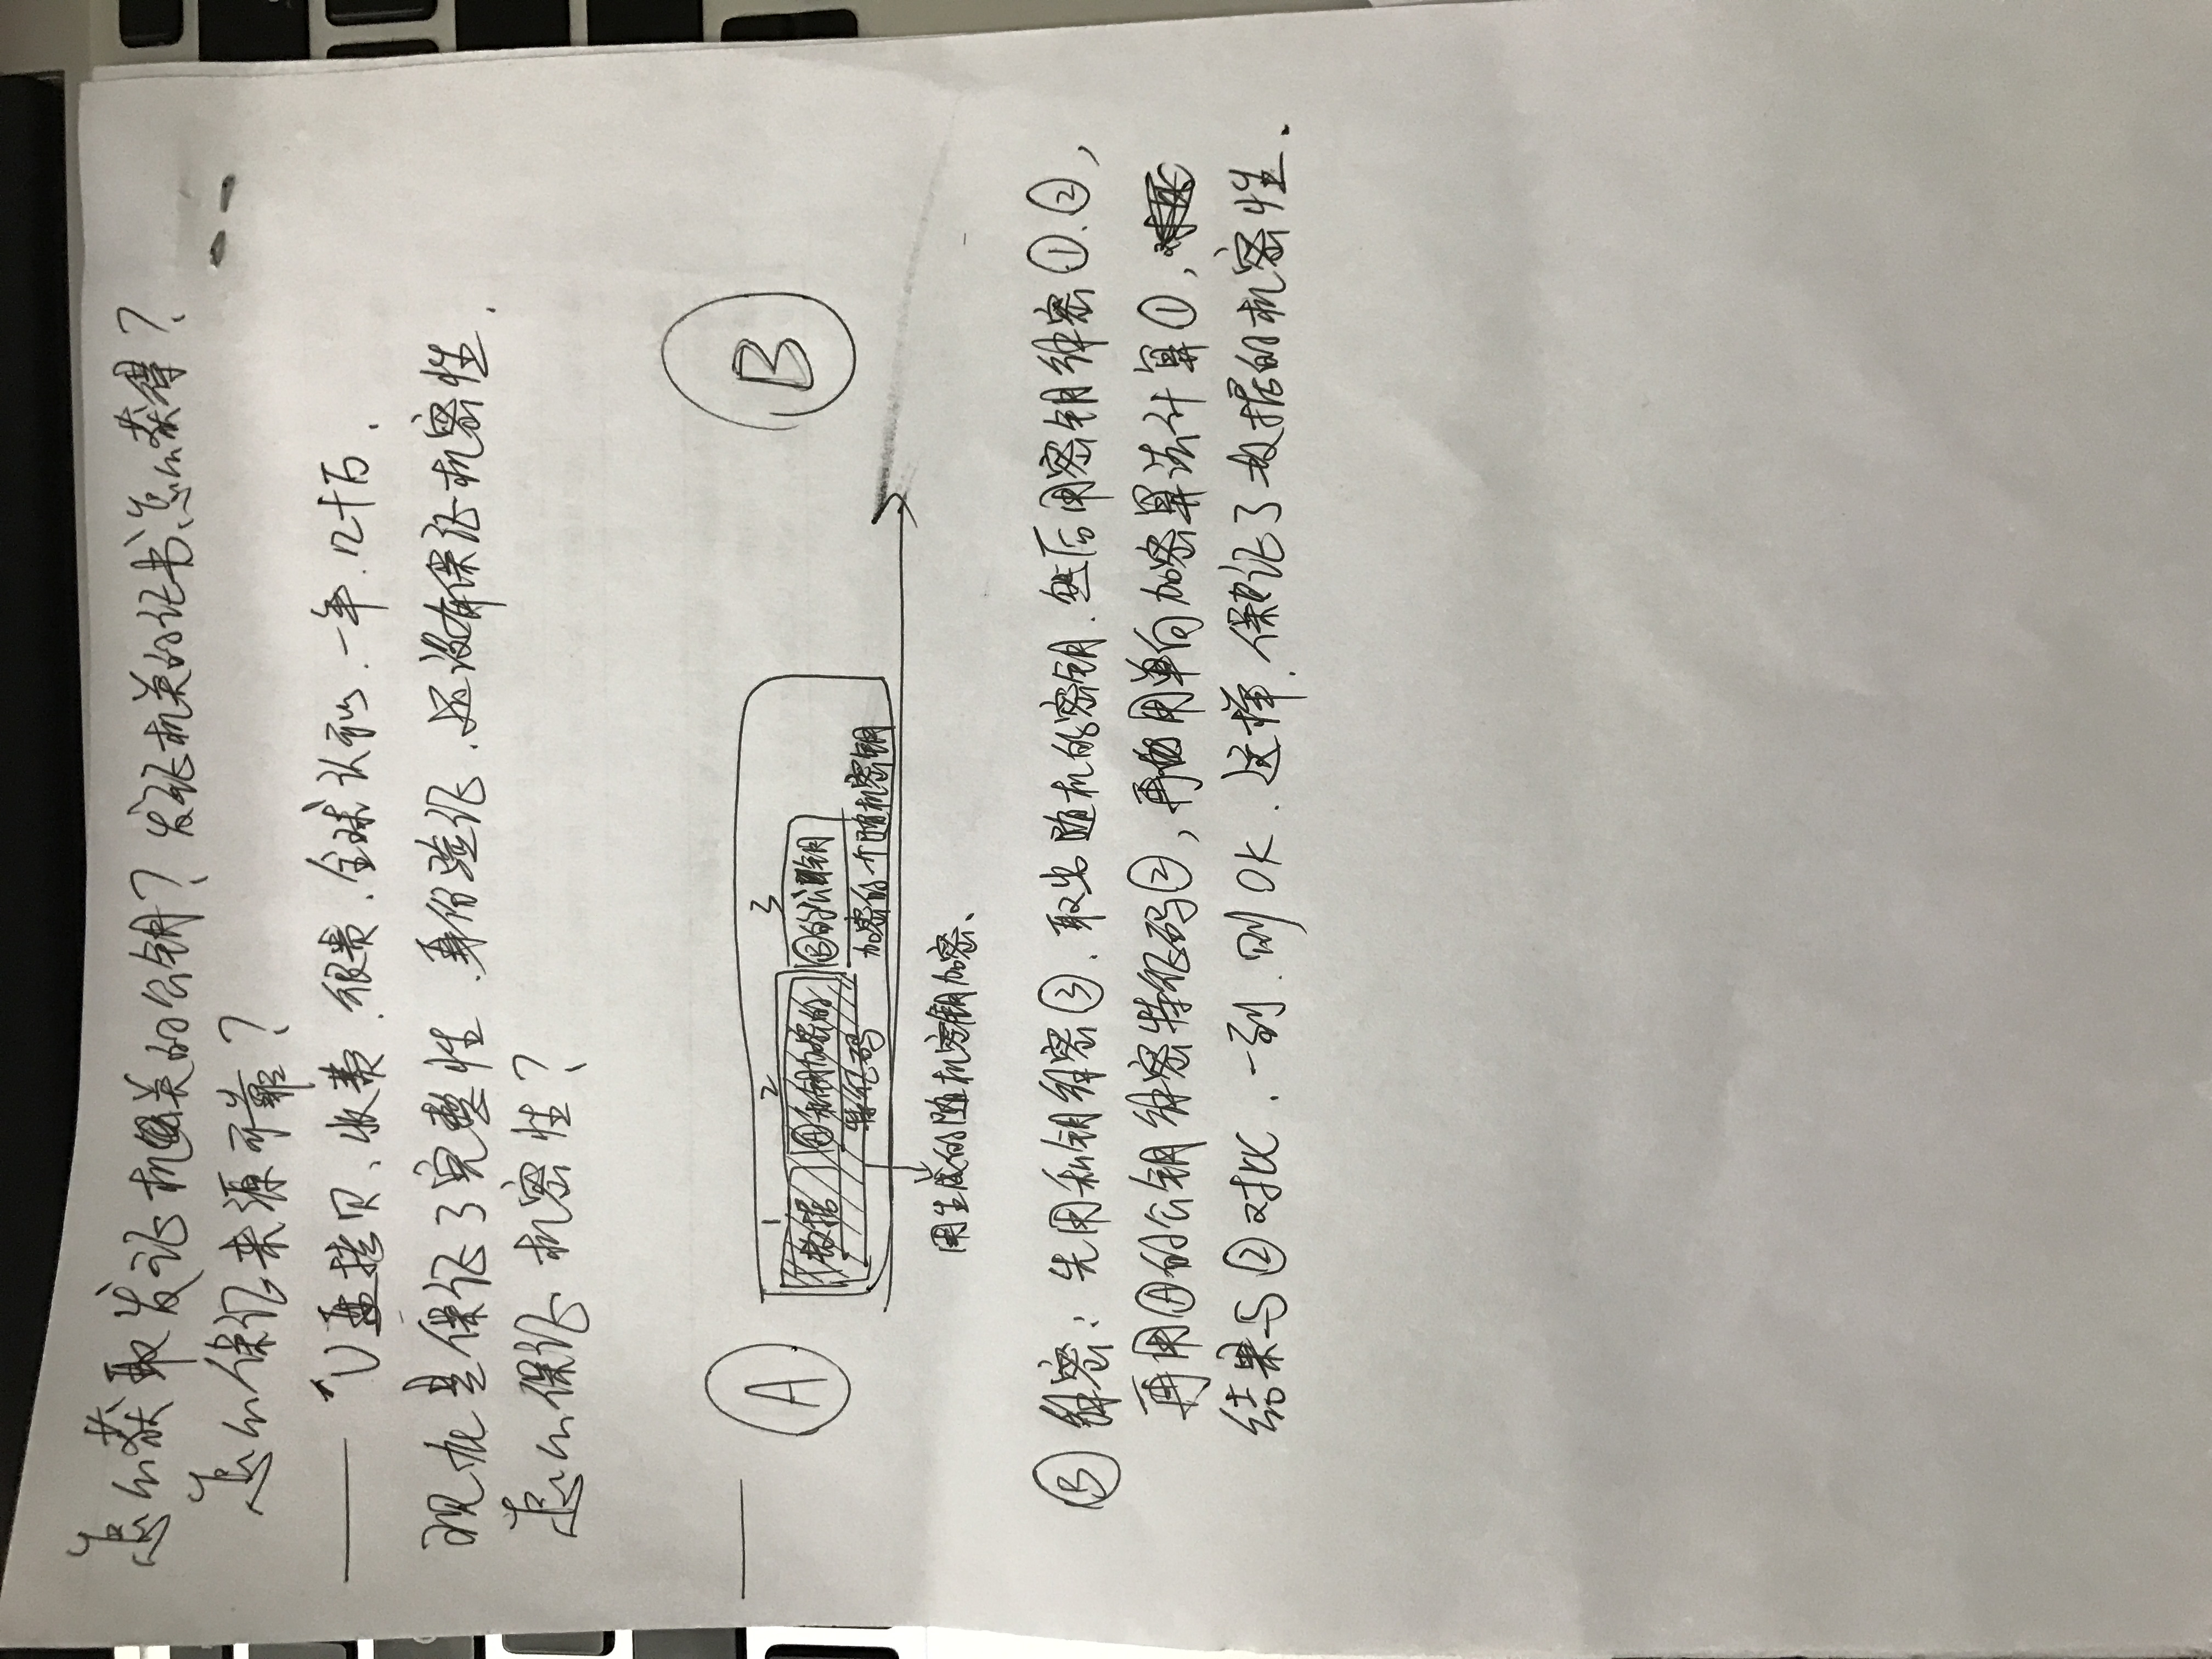 怎么获取发证机关的公钥？发证机关的证书怎么获得？
怎么保证来源可靠？
U盘拷贝、收费、很贵、全球认可、一年、几十万.
现在是保证了完整性、身份验证、还没有保证机密性.
怎么保证机密性？
A
1 2 3
数据 Ⓐ私钥加密的 Ⓑ的公钥
特征码 加密的一个随机密钥
B
用生成的随机密钥加密、
Ⓑ 解密：先用私钥解密③、取出随机的密钥、然后用密钥解密①、②，
再用Ⓐ的公钥解密特征码②，再用单向加密算法计算①，
结果与②对比、一致、则OK、这样、保证了数据的机密性.